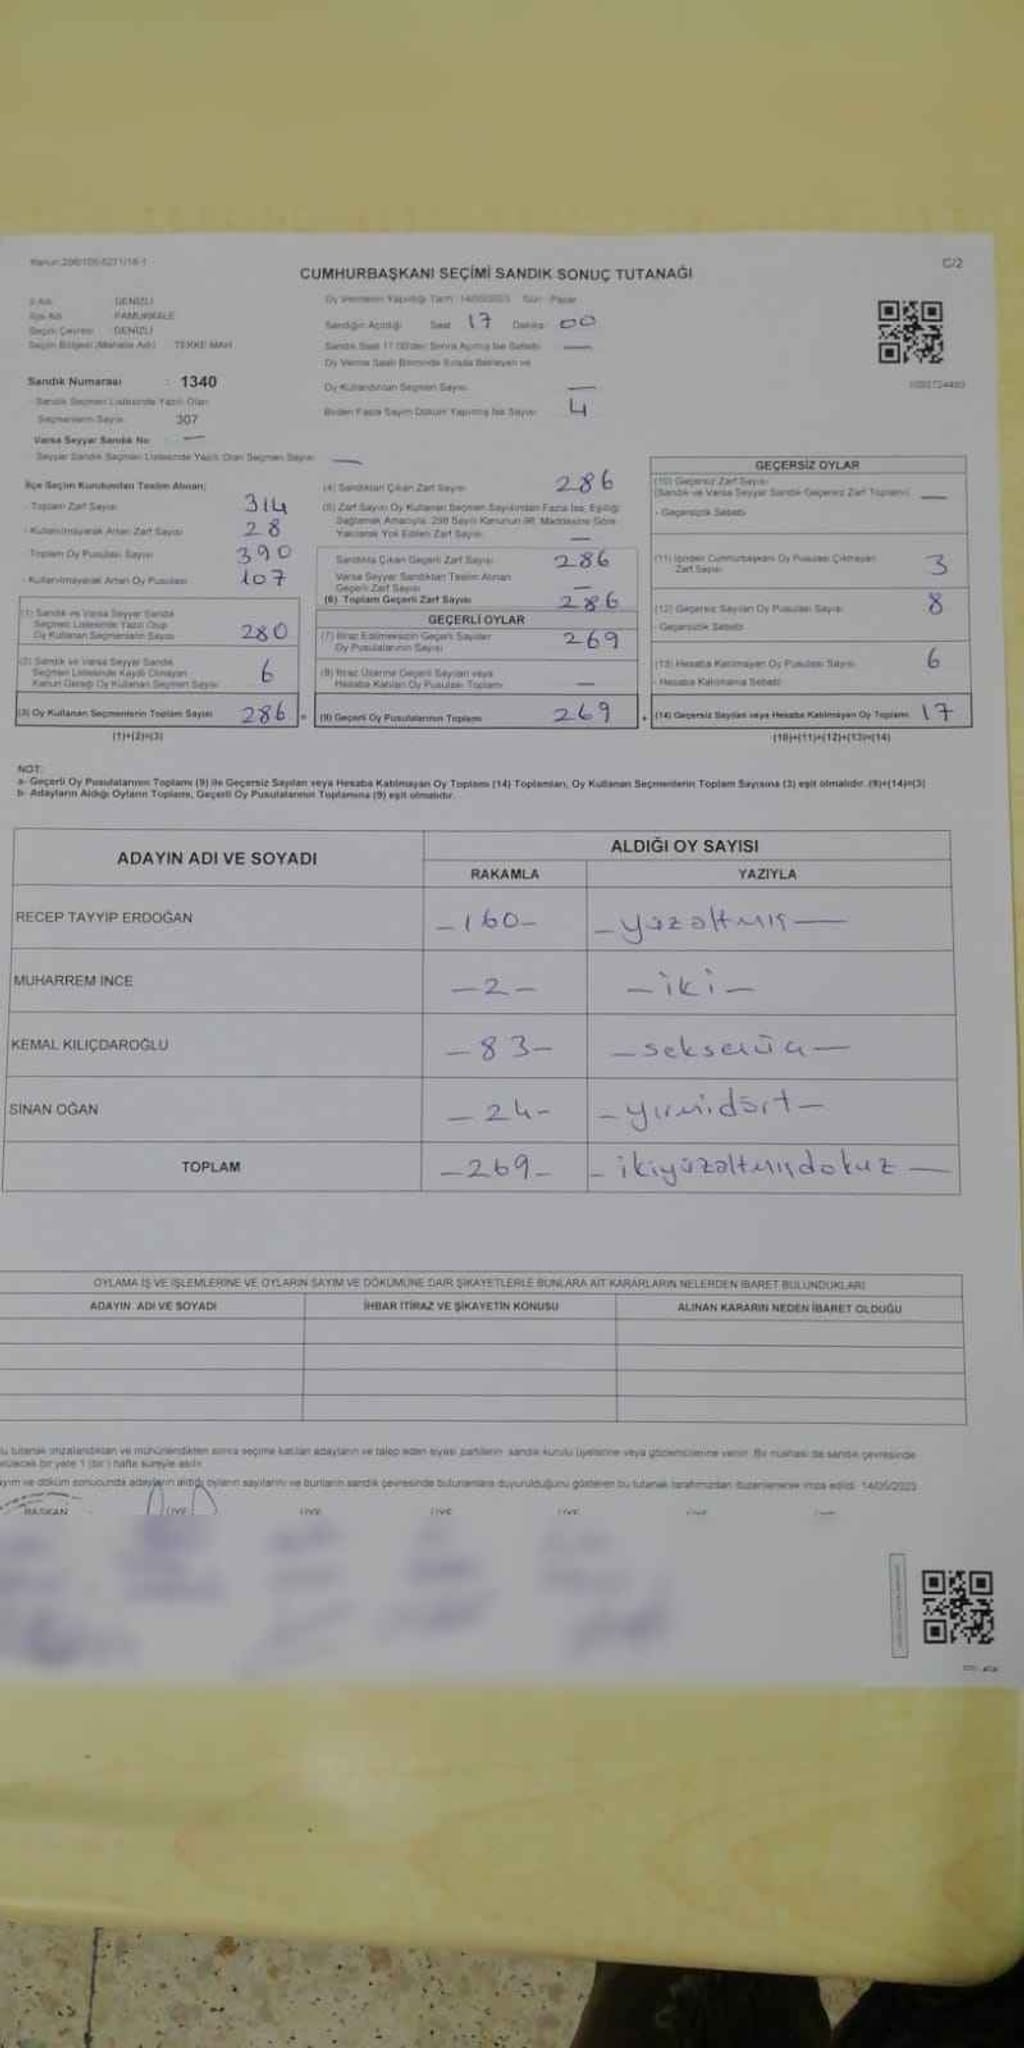 CUMHURBAŞKANI SEÇİMİ SANDIK SONUÇ TUTANAĞI
C/2
İl Adı DENİZLİ
İlçe Adı PAMUKKALE
Seçim Çevresi DENİZLİ
Seçim Bölgesi (Mahalle Adı) TEKKE MAH.
Oy Vermenin Yapıldığı Tarih : 14/05/2023 Gün : Pazar
Sandığın Açıldığı Saat 17 Dakika 00
Sandık Saat 17.00'den Sonra Açılmış İse Sebebi —
Oy Verme Saati Bitiminde Sırada Bekleyen ve
Oy Kullandırılan Seçmen Sayısı —
Birden Fazla Sayım Döküm Yapılmış İse Sayısı 4
Sandık Numarası : 1340
Sandık Seçmen Listesinde Yazılı Olan
Seçmenlerin Sayısı 307
Varsa Seyyar Sandık No —
Seyyar Sandık Seçmen Listesinde Yazılı Olan Seçmen Sayısı —
İlçe Seçim Kurulundan Teslim Alınan;
- Toplam Zarf Sayısı 314
- Kullanılmayarak Artan Zarf Sayısı 28
Toplam Oy Pusulası Sayısı 390
- Kullanılmayarak Artan Oy Pusulası 107
(1) Sandık ve Varsa Seyyar Sandık
Seçmen Listesinde Yazılı Olup
Oy Kullanan Seçmenlerin Sayısı 280
(2) Sandık ve Varsa Seyyar Sandık
Seçmen Listesinde Kaydı Olmayan
Kanun Gereği Oy Kullanan Seçmen Sayısı 6
(3) Oy Kullanan Seçmenlerin Toplam Sayısı 286 =
(1)+(2)=(3)
(4) Sandıktan Çıkan Zarf Sayısı 286
(5) Zarf Sayısı Oy Kullanan Seçmen Sayısından Fazla İse, Eşitliği
Sağlamak Amacıyla, 298 Sayılı Kanunun 98. Maddesine Göre
Yakılarak Yok Edilen Zarf Sayısı —
Sandıkta Çıkan Geçerli Zarf Sayısı 286
Varsa Seyyar Sandıktan Teslim Alınan
Geçerli Zarf Sayısı —
(6) Toplam Geçerli Zarf Sayısı 286
GEÇERLİ OYLAR
(7) İtiraz Edilmeksizin Geçerli Sayılan
Oy Pusulalarının Sayısı 269
(8) İtiraz Üzerine Geçerli Sayılan veya
Hesaba Katılan Oy Pusulası Toplamı —
(9) Geçerli Oy Pusulalarının Toplamı 269 +
GEÇERSİZ OYLAR
(10) Geçersiz Zarf Sayısı
(Sandık ve Varsa Seyyar Sandık Geçersiz Zarf Toplamı) —
- Geçersizlik Sebebi
(11) İçinden Cumhurbaşkanı Oy Pusulası Çıkmayan
Zarf Sayısı 3
(12) Geçersiz Sayılan Oy Pusulası Sayısı 8
- Geçersizlik Sebebi
(13) Hesaba Katılmayan Oy Pusulası Sayısı 6
- Hesaba Katılmama Sebebi
(14) Geçersiz Sayılan veya Hesaba Katılmayan Oy Toplamı 17
(10)+(11)+(12)+(13)=(14)
NOT:
a- Geçerli Oy Pusulalarının Toplamı (9) ile Geçersiz Sayılan veya Hesaba Katılmayan Oy Toplamı (14) Toplamları, Oy Kullanan Seçmenlerin Toplam Sayısına (3) eşit olmalıdır. (9)+(14)=(3)
b- Adayların Aldığı Oyların Toplamı, Geçerli Oy Pusulalarının Toplamına (9) eşit olmalıdır.
ADAYIN ADI VE SOYADI ALDIĞI OY SAYISI
RAKAMLA YAZIYLA
RECEP TAYYİP ERDOĞAN -160- - yüzaltmış —
MUHARREM İNCE -2- - iki -
KEMAL KILIÇDAROĞLU -83- - seksenüç —
SİNAN OĞAN -24- - yirmidört -
TOPLAM -269- - ikiyüzaltmışdokuz —
OYLAMA İŞ VE İŞLEMLERİNE VE OYLARIN SAYIM VE DÖKÜMÜNE DAİR ŞİKAYETLERLE BUNLARA AİT KARARLARIN NELERDEN İBARET BULUNDUKLARI
ADAYIN ADI VE SOYADI İHBAR İTİRAZ VE ŞİKAYETİN KONUSU ALINAN KARARIN NEDEN İBARET OLDUĞU
tutanak imzalandıktan ve mühürlendikten sonra seçime katılan adayların ve talep eden siyasi partilerin sandık kurulu üyelerine veya gözlemcilerine verilir. Bir nüshası da sandık çevresinde
bir yere 1 (bir) hafta süreyle asılır.
ve döküm sonucunda adayların aldığı oyların sayılarını ve bunların sandık çevresinde bulunanlara duyurulduğunu gösteren bu tutanak tarafımızdan düzenlenerek imza edildi. 14/05/2023
BAŞKAN ÜYE ÜYE ÜYE ÜYE ÜYE